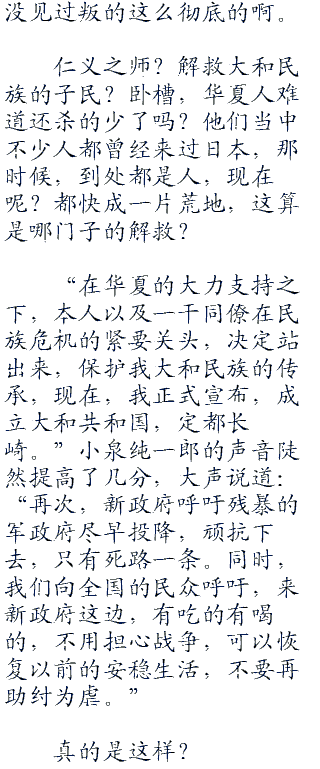 没见过叛的这么彻底的啊。
仁义之师？解救大和民
族的子民？卧槽，华夏人难
道还杀的少了吗？他们当中
不少人都曾经来过日本，那
时候，到处都是人，现在
呢？都快成一片荒地，这算
是哪门子的解救？
“在华夏的大力支持之
下，本人以及一干同僚在民
族危机的紧要关头，决定站
出来，保护我大和民族的传
承，现在，我正式宣布，成
立大和共和国，定都长
崎。”小泉纯一郎的声音陡
然提高了几分，大声说道：
“再次，新政府呼吁残暴的
军政府尽早投降，顽抗下
去，只有死路一条。同时，
我们向全国的民众呼吁，来
新政府这边，有吃的有喝
的，不用担心战争，可以恢
复以前的安稳生活，不要再
助纣为虐。”
真的是这样？